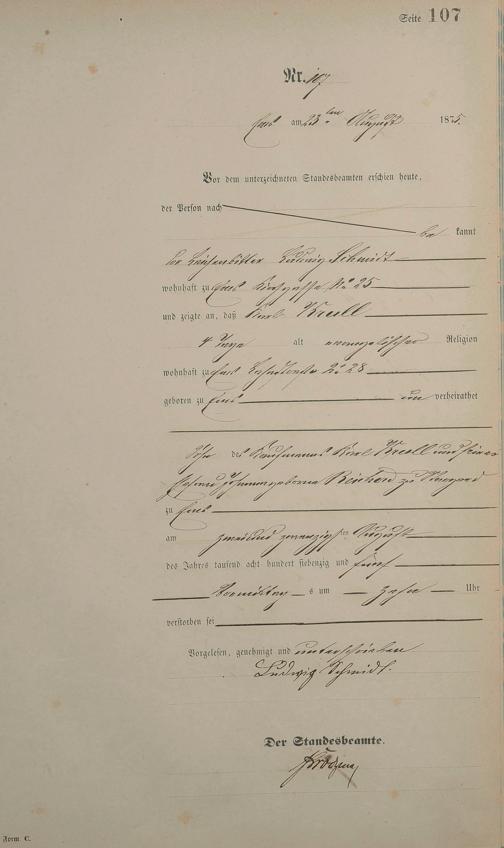 Seite 107
Nr. 107
Ems am 23ten August 1875.
Vor dem unterzeichneten Standesbeamten erschien heute,
der Person nach
be kannt
der Leichenbitter Ludwig Schmidt
wohnhaft zu Ems Kirchgasse No 25
und zeigte an, daß Karl Krull
4 Tage alt evangelischer Religion
wohnhaft zu Ems No 28
geboren zu Ems un verheirathet
Sohn des Kaufmanns Karl Krull und seiner
Ehefrau geborene Reinhard
zu Ems
am zweiundzwanzigsten August
des Jahres tausend acht hundert siebenzig und fünf
Vormittags um zehn Uhr
verstorben sei
Vorgelesen, genehmigt und unterschrieben
Ludwig Schmidt.
Der Standesbeamte.
Form C.